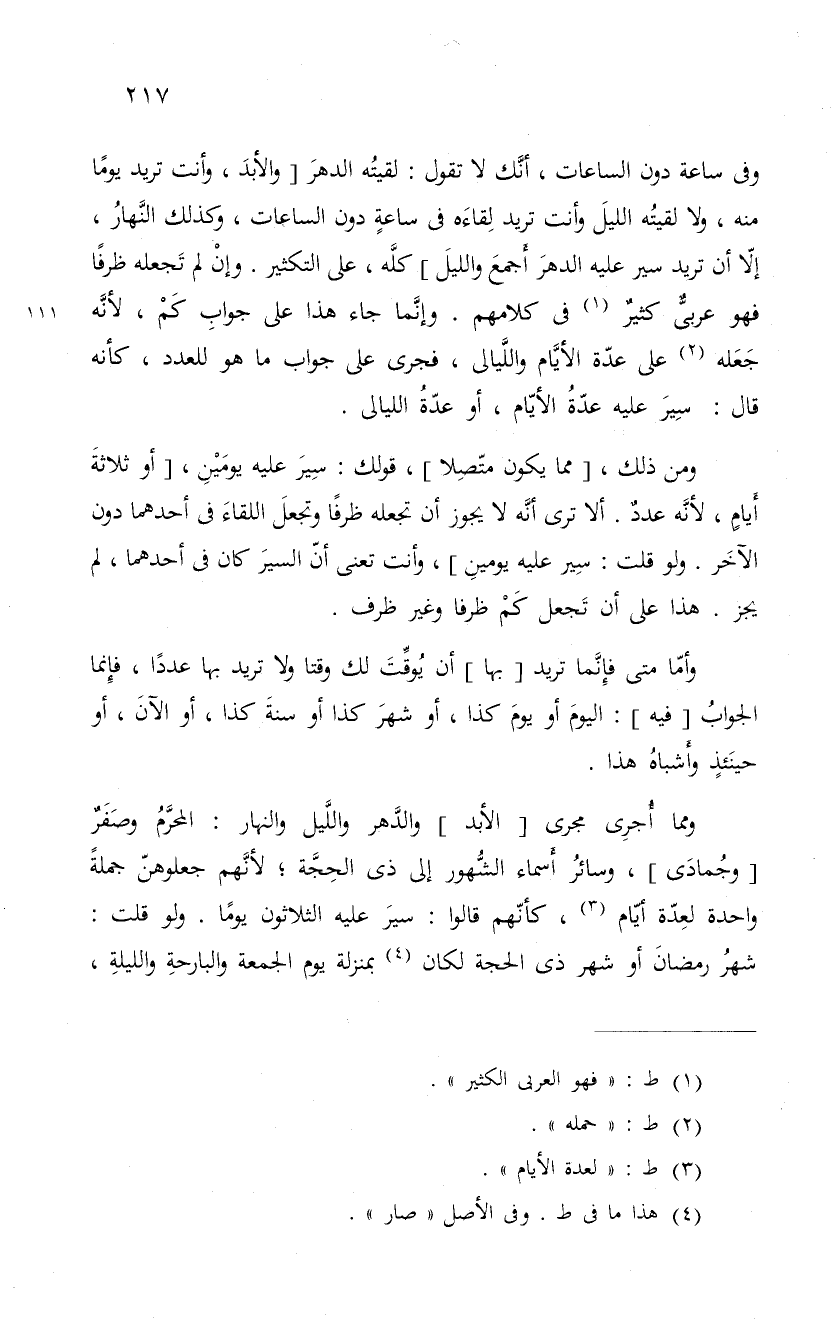 ٢١٧
وفى ساعة دون الساعات ، أنَّك لا تقول : لقيتُه الدهرَ [ والأبدَ ، وأنت تريد يومًا
منه ، ولا لقيتُه الليلَ وأنت تريد لِقاءَه فى ساعةٍ دون الساعات ، وكذلك النَّهارُ ،
إلّا أن تريد سير عليه الدهرَ أَجمعَ والليلَ ] كلَّه ، على التكثير . وإنْ لم تَجعله ظرفًا
فهو عربىٌّ كثيرٌ (١) فى كلامهم . وإنَّما جاء هذا على جوابِ كَمْ ، لأنَّه ١١١
جَعَله (٢) على عدّة الأيَّام واللَّيالى ، فجرى على جواب ما هو للعدد ، كأنه
قال : سِيرَ عليه عدّةُ الأيّام ، أو عدّةُ الليالى .
ومن ذلك ، [ مما يكون متّصِلا ] ، قولك : سِيرَ عليه يومَيْنِ ، [ أو ثلاثةَ
أَيامٍ ، لأنَّه عددٌ . ألا ترى أنَّه لا يجوز أن تجعله ظرفًا وتجعلَ اللقاءَ فى أحدهما دون
الآخَر . ولو قلت : سِير عليه يومينِ ] ، وأنت تعنى أنّ السيرَ كان فى أحدهما ، لم
يجز . هذا على أن تَجعل كَمْ ظرفا وغير ظرف .
وأمّا متى فإِنَّما تريد [ بها ] أن يُوقِّتَ لك وقتا ولا تريد بها عددًا ، فإِنما
الجوابُ [ فيه ] : اليومَ أو يومَ كذا ، أو شهرَ كذا أو سنةَ كذا ، أو الآنَ ، أو
حينَئذٍ وأَشباهُ هذا .
ومما أُجرِى مجرى [ الأبد ] والدَّهر واللَّيل والنهار : المحرَّمُ وصَفَرٌ
[ وجُمادَى ] ، وسائرُ أَسماء الشُّهور إلى ذى الحِجَّة ؛ لأنَّهم جعلوهنّ جملةً
واحدة لعِدّة أيّام (٣) ، كأنّهم قالوا : سيرَ عليه الثلاثون يومًا . ولو قلت :
شهرُ رمضانَ أو شهر ذى الحجة لكان (٤) بمنزلة يوم الجمعة والبارحةِ والليلةِ ،
(١) ط : « فهو العربى الكثير » .
(٢) ط : « حمله » .
(٣) ط : « لعدة الأيام » .
(٤) هذا ما فى ط . وفى الأصل « صار » .